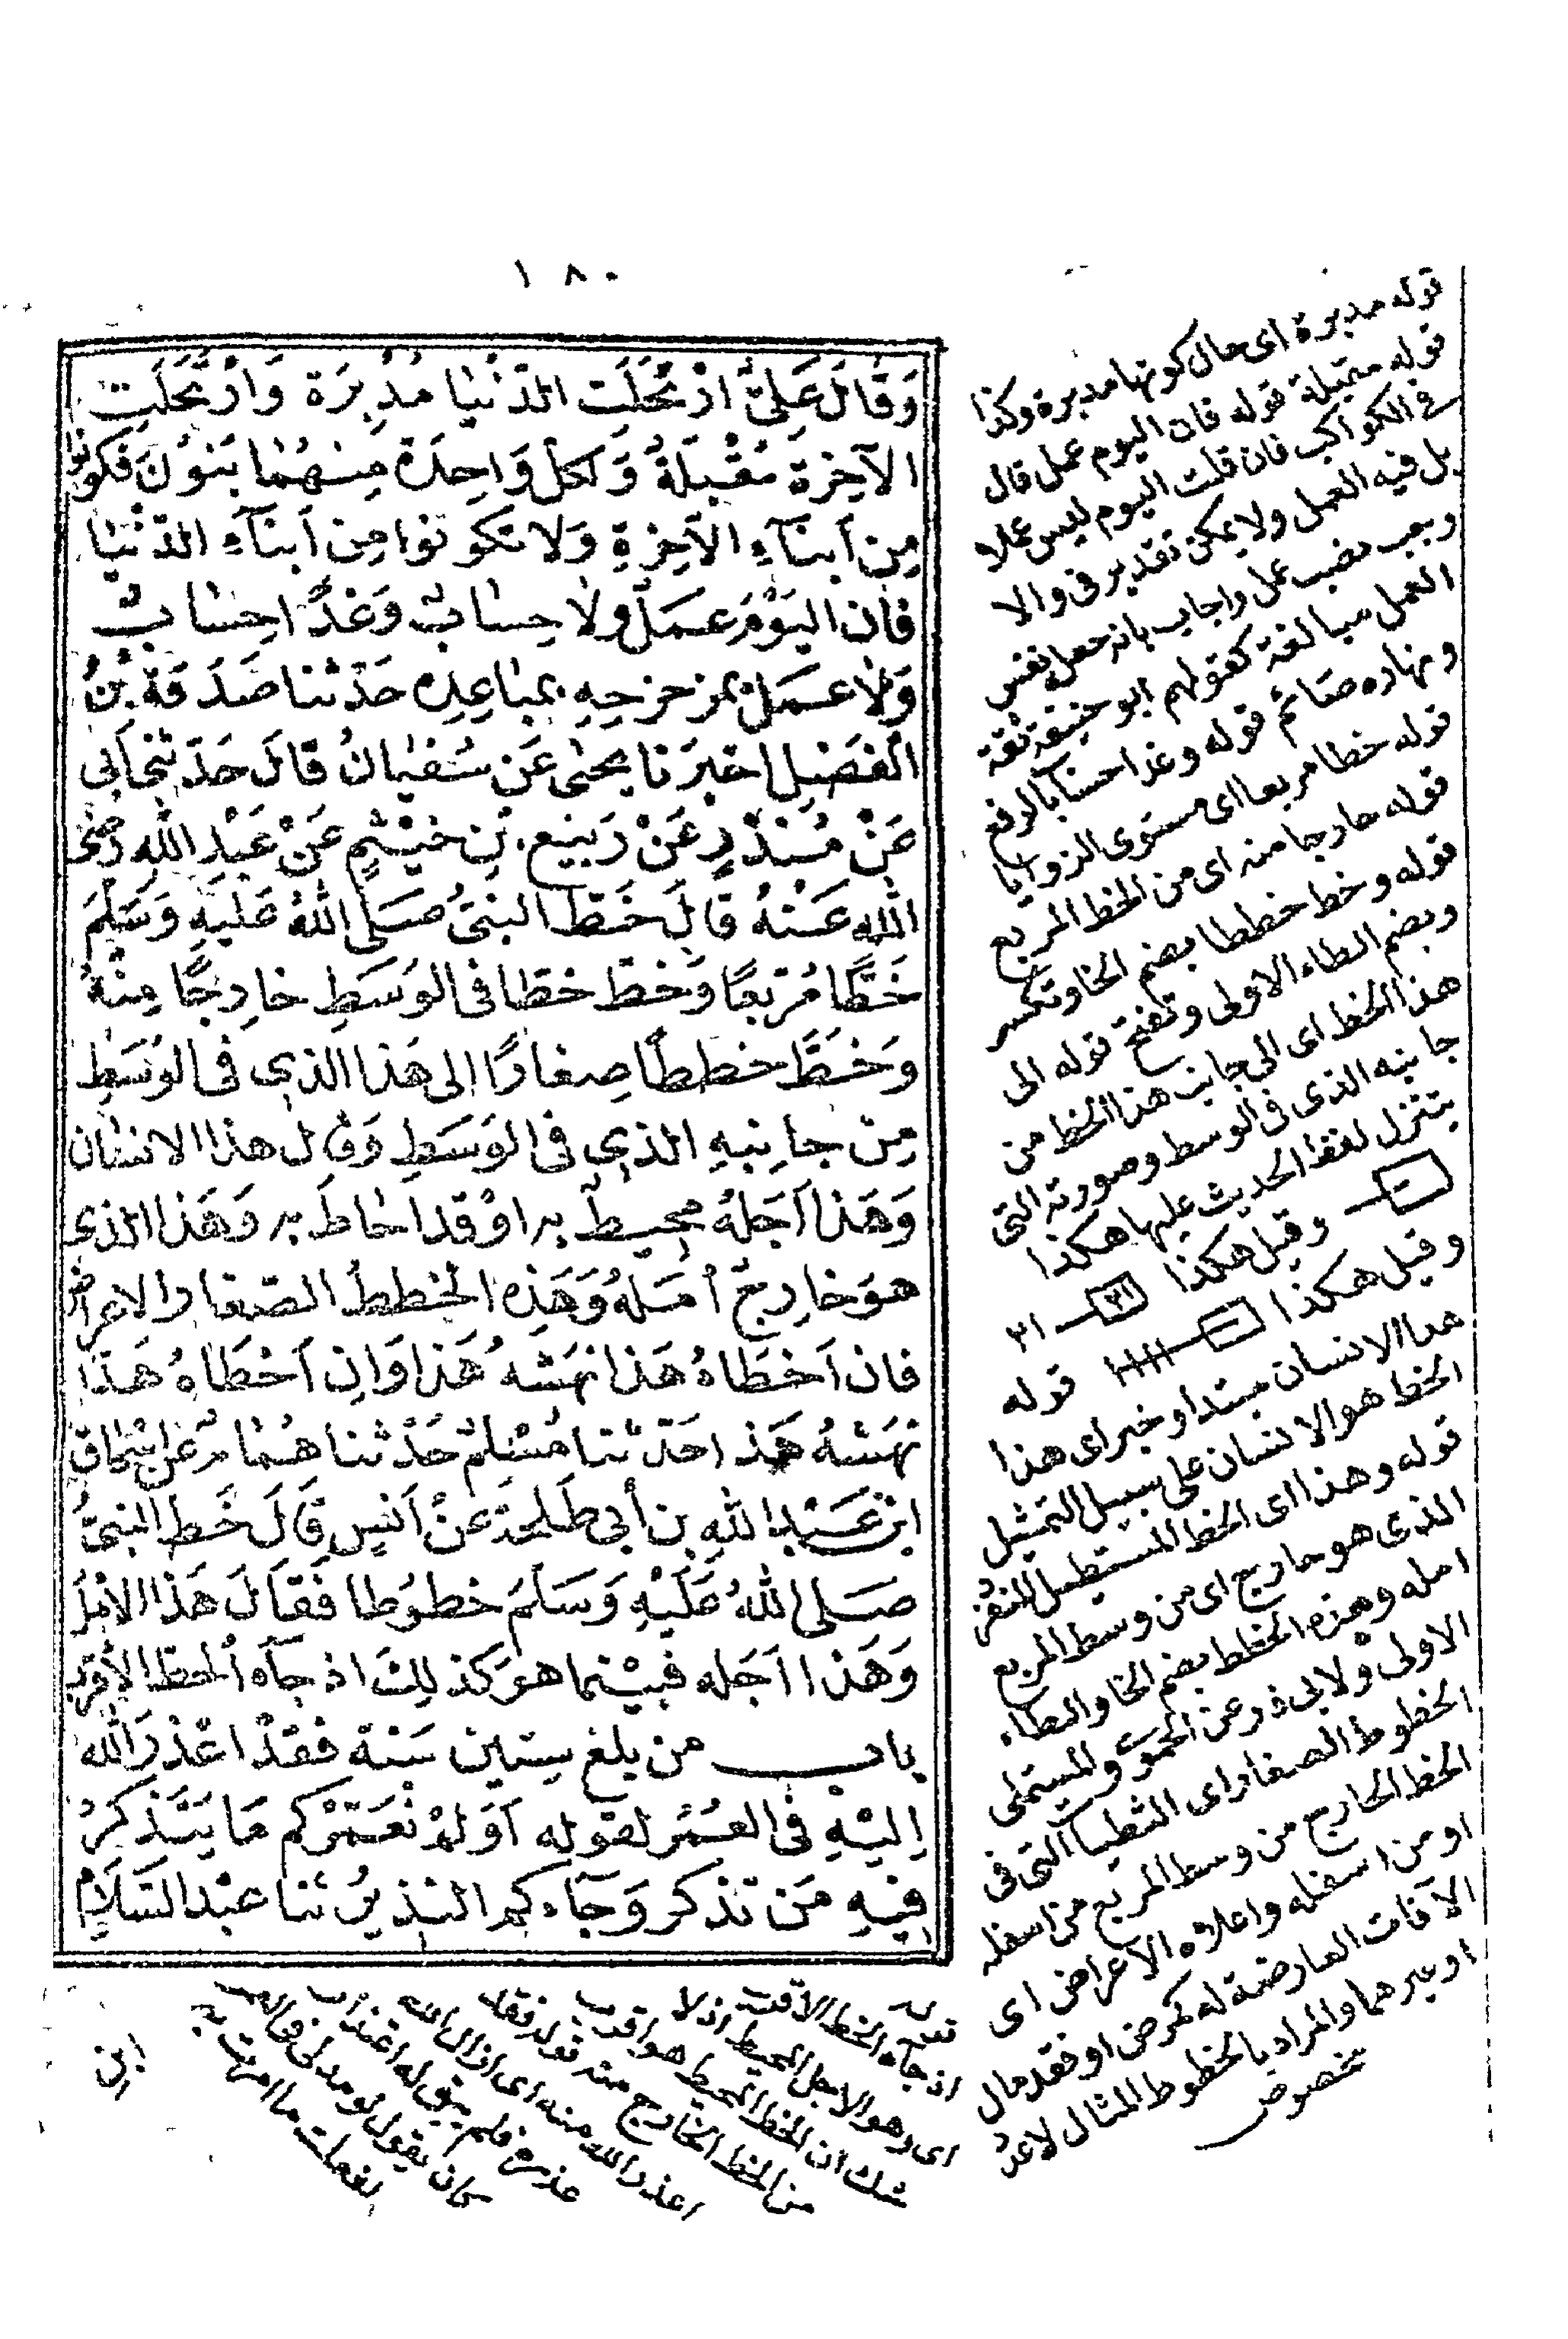 ١٨٠
وَقَالَ عَلِيٌّ ارْتَحَلَتِ الدُّنْيَا مُدْبِرَة وَارْتَحَلَتِ
الآخِرَة مُقْبِلَةً وَلكل وَاحِدَة مِنهُمَا بَنوُنَ فكونوا
مِن اَبنَآءِ الآخِرَةِ وَلا تكونوا مِن اَبنَاءِ الدّنْيَا
فاِن اليَوْمَ عَمَلٌ ولا حِسَابٌ وَغَدًا حِسَابٌ
وَلا عَمَلٌ بمزحزحِهِ بمبَاعِدِه حَدّثنا صَدَقة بْنُ
الفَضْلِ اخبَرَنا يحيٰى عَن سُفيَانُ قالَ حَدَّثني اَبي
عَنْ مُنذِرٍ عَنْ رَبيع بن خيْثمٍ عَنْ عَبْدِ اللهِ رَضَى
الله عَنْهُ قالَ خَطّ النبىُّ صَلى اللهُ عَليهِ وَسَلمَ
خَطًّا مُرَبعًا وَخطّ خطّا فى الوَسَطِ خارِجًا مِنْهُ
وَخطَّ خططًا صِغارًا الى هَذا الذي فى الوَسَطِ
مِن جانِبهِ الذي فى الوَسَطِ وَقال هذا الانسَان
وَهَذا اَجَلهُ محيطٌ به اوْ قد احَاطَ به وَهَذا الذى
هوَ خارِجٌ اَمَلهُ وَهَذِه الخطط الصّغار الاعراض
فان اَخطَاهُ هَذا نهَشهُ هَذا وَان اَخطَاهُ هَذا
نهَشهُ هَذا حَدّثنا مُسْلمٌ حَدّثنا هُمَامٌ عَن اِسْحَاق
ابْن عَبْدِ اللهِ بن أبي طَلحَة عَنْ اَنسٍ قالَ خَط النبىُّ
صَلى اللهُ عَليْهِ وَسَلمَ خطوُطا فقالَ هَذا الاَمَلُ
وَهَذا اَجَله فبيْنما هوَ كذلِكَ اذ جآءَه الخط الأقرب
باب من بلغ سِتين سَنة فقدْ اعْذرَ الله
اِليْهِ فى العُمُرِ لقولِه اَوَلمْ نُعَمِّرْكم مَا يَتَذكرُ
فِيهِ مَن تذكر وَجآءكم النذيرُ ثنا عبْد السَّلام
ابن
قوله مدبرة اى حال كونها مدبرة وكذا
قوله مقبلة قوله فان اليوم عمل قال
فى الكواكب فان قلت اليوم ليس عملا
بل فيه العمل ولا يمكن تقدير فى والا
وجب نصب عمل واجاب بانه جعل نفس
العمل مبالغة كقولهم ابو حنيفة ثقة
ونهاره صائم قوله وغدا حساب بالرفع
قوله خطا مربعا اى مستوى الزوايا
قوله خارجا منه اى من الخط المربع
قوله وخط خططا بضم الخا وتكسر
وبضم الطاء الاولى وتفتح قوله الى
هذا الخط اى الى جانب هذا الخط من
جانبه الذى فى الوسط وصورته التى
يتنزل لفظ الحديث عليها هكذا
وقيل هكذا
وقيل هكذا قوله
هذا الانسان مبتدا وخبر اى هذا
الخط هو الانسان على سبيل التمثيل
قوله وهذا اى الخط المستطيل المنفرد
الذى هو خارج اى من وسط المربع
امله وهذه الخطط بضم الخا والطاء
الاولى ولابى ذر عن الحموى والمستملى
الخطوط الصغار اى الشطبات التى فى
الخط الخارج من وسط المربع من اسفله
او من اسفله واعلاه الاعراض اى
الآفات العارضة له كمرض او فقد مال
او غيرهما والمراد بالخطوط المثال لا عدد
مخصوص
قوله
اذ جآءه الخط الاقرب
اى وهو الاجل المحيط اذ لا
شك ان الخط المحيط هو اقرب
من الخط الخارج منه قوله فقد
اعذر الله منه اى ازال الله
عذره فلم يبق له اعتذار
كان يقول لو مد لى فى الاجل
لفعلت ما امرت به